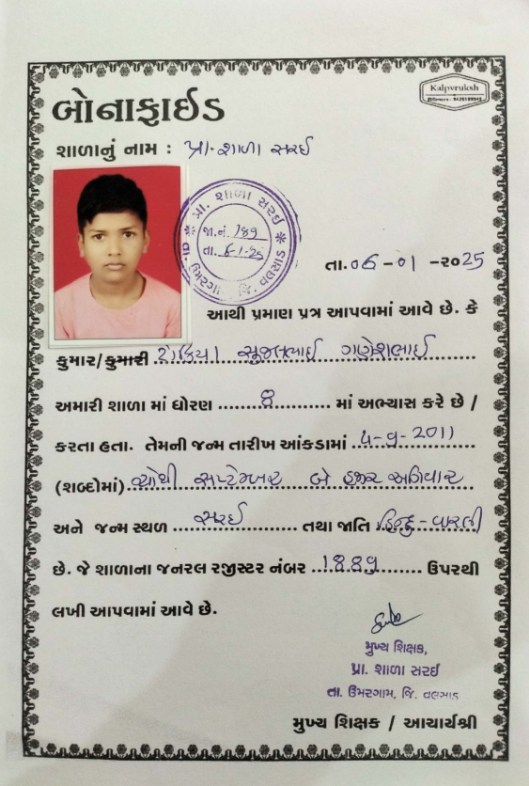 Kalpvruksh
બોનાફાઈડ
શાળાનું નામ : પ્રા. શાળા સરઈ
પ્રા. શાળા સરઈ
જા.નં. 189
તા. 6-1-25
તા. ઉમરગામ જિ. વલસાડ
તા. 06-01-૨૦25
આથી પ્રમાણ પત્ર આપવામાં આવે છે. કે
કુમાર/કુમારી સૂરજભાઈ ગણેશભાઈ
અમારી શાળા માં ધોરણ 8 માં અભ્યાસ કરે છે /
કરતા હતા. તેમની જન્મ તારીખ આંકડામાં 4-9-2011
(શબ્દોમાં) ચોથી સપ્ટેમ્બર બે હજાર અગિયાર
અને જન્મ સ્થળ સરઈ તથા જાતિ હિન્દુ-વારલી
છે. જે શાળાના જનરલ રજીસ્ટર નંબર 1889 ઉપરથી
લખી આપવામાં આવે છે.
મુખ્ય શિક્ષક,
પ્રા. શાળા સરઈ
તા. ઉમરગામ, જિ. વલસાડ
મુખ્ય શિક્ષક / આચાર્યશ્રી